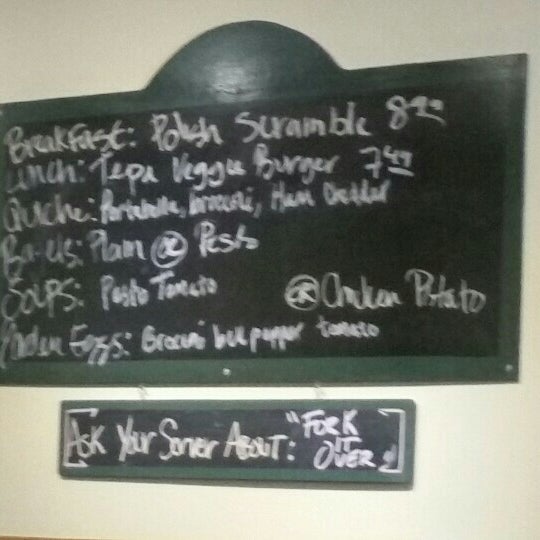 BreakFast: Polish Scramble 8.99
Lunch: Tepa Veggie Burger 7.49
Quiche: Portabella, broccoli, Ham Cheddar
Bagels: Plain OR Pesto
Soups: Pesto Tomato OR Chicken Potato
Eggs: Broccoli bell pepper tomato
ASK Your Server ABOUT: "FORK IT OVER"